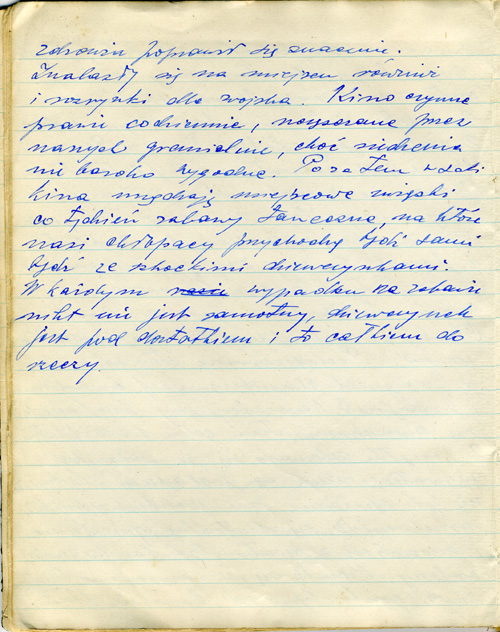 zdrowiu poprawił się znacznie.
Znalazły się na miejscu również
i rozrywki dla wojska. Kino czynne
prawie codziennie, uczęszczane przez
naszych gremialnie, choć siedzenia
nie bardzo wygodne. Poza tem w sali
kina urządzają miejscowe związki
co tydzień zabawy taneczne, na które
nasi chłopacy przychodzą bądź sami
bądź ze szkockimi dziewczynkami.
W każdym razie wypadku na zabawie
nikt nie jest samotny, dziewczynek
jest pod dostatkiem i to całkiem do
rzeczy.